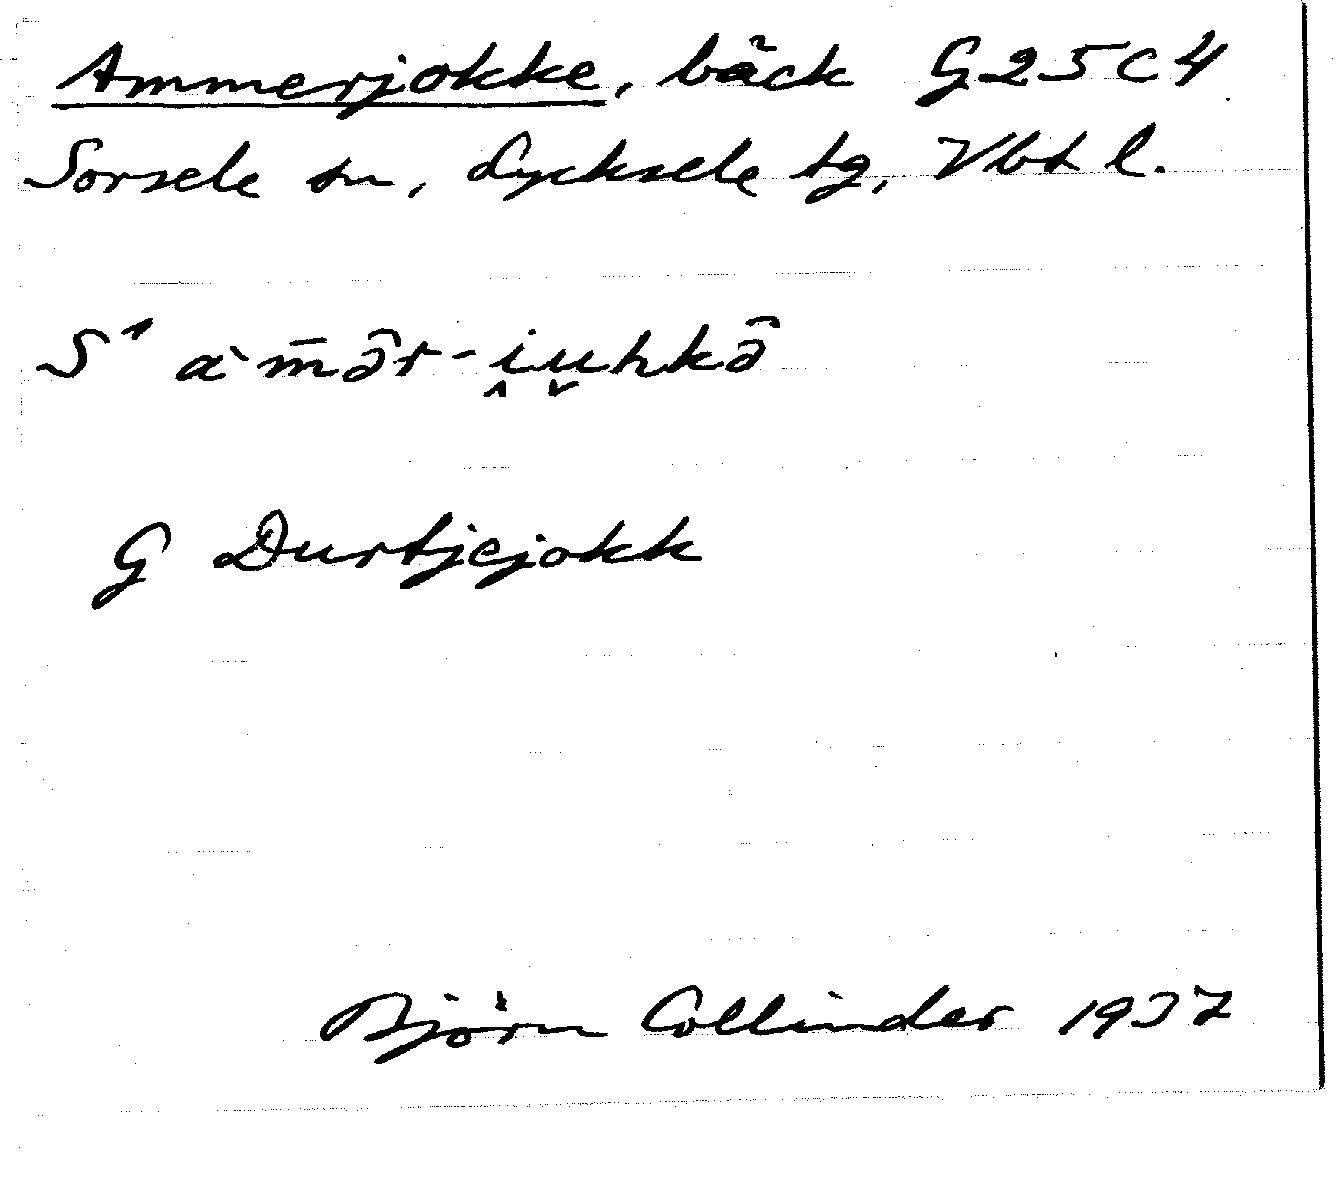 Ammerjokke, bäck G25C4
Sorsele sn, Lycksele tg, Vbt l.
S¹ a`m̄ə̑r-i̭u̬hkə̑
G Durtjejokk
Björn Collinder 1937